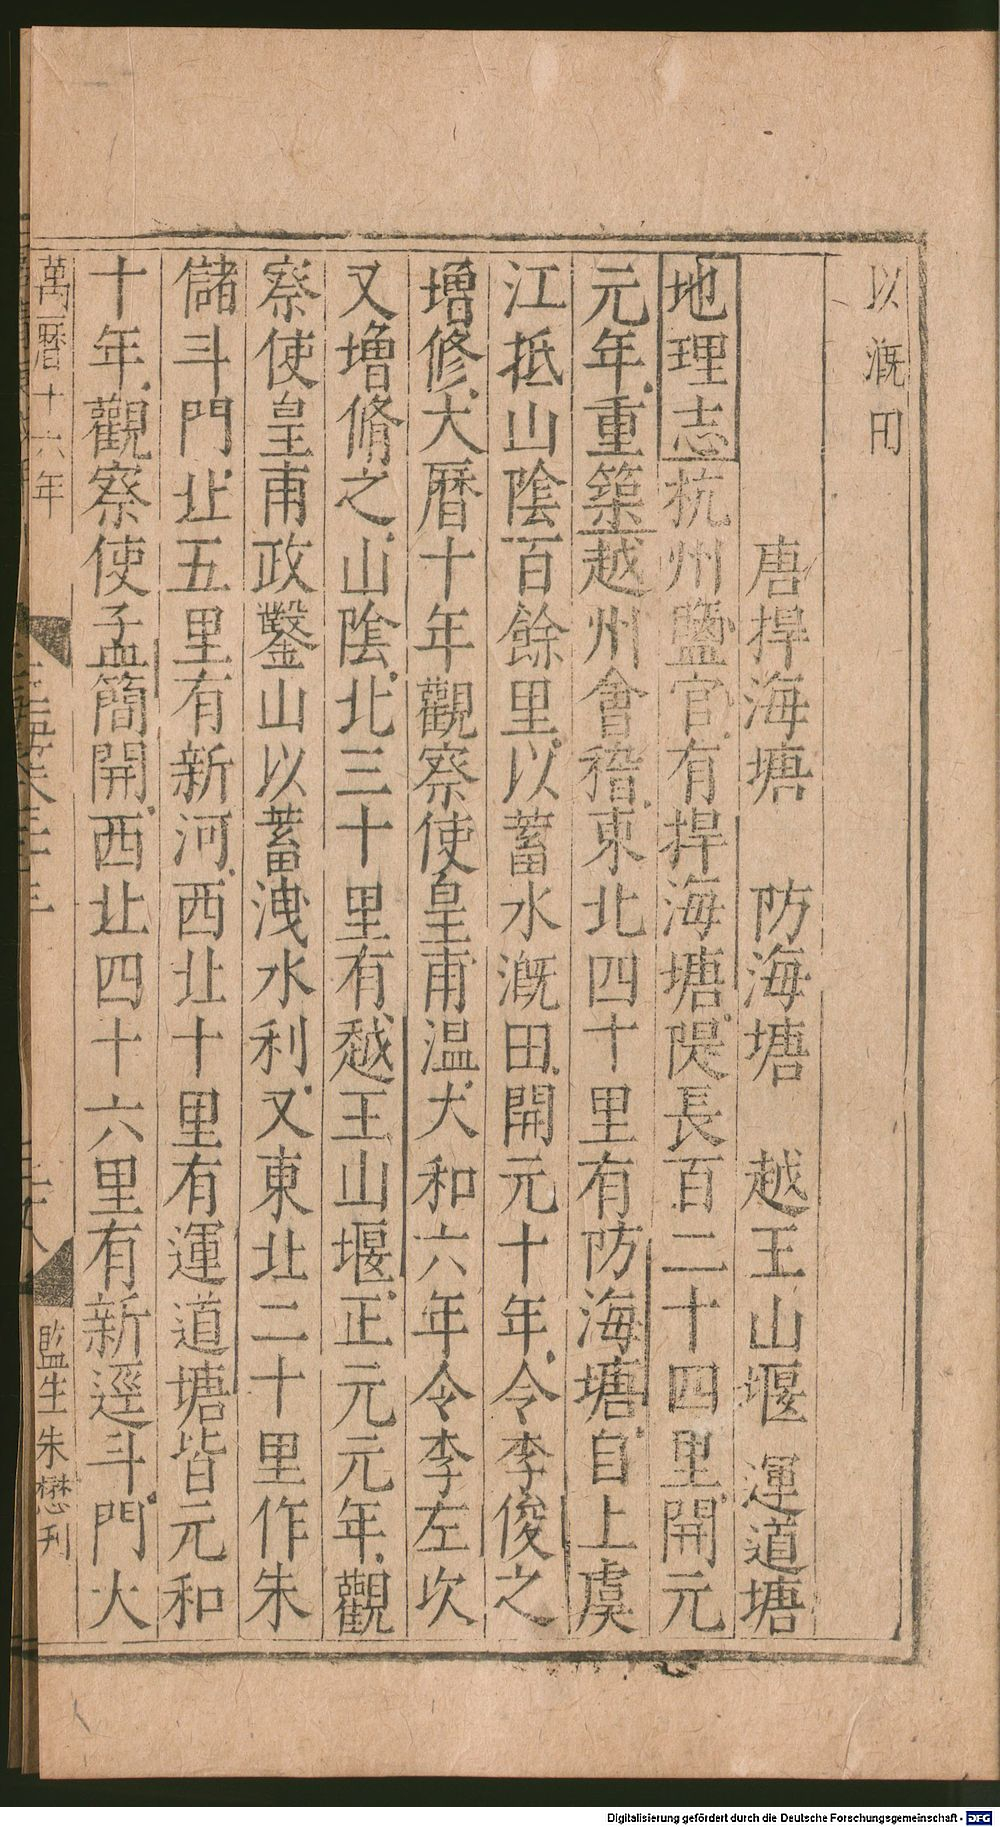 以溉田
唐捍海塘　防海塘　越王山堰　運道塘
地理志杭州鹽官有捍海塘隄長百二十四里開元
元年重築越州會稽東北四十里有防海塘自上虞
江抵山陰百餘里以蓄水溉田開元十年令李俊之
增修大曆十年觀察使皇甫溫大和六年令李左次
又增脩之山陰北三十里有越王山堰正元元年觀
察使皇甫政鑿山以蓄洩水利又東北二十里作朱
儲斗門北五里有新河西北十里有運道塘皆元和
十年觀察使孟簡開西北四十六里有新逕斗門大
萬曆十六年
監生朱懋刊
Digitalisierung gefördert durch die Deutsche Forschungsgemeinschaft - DFG